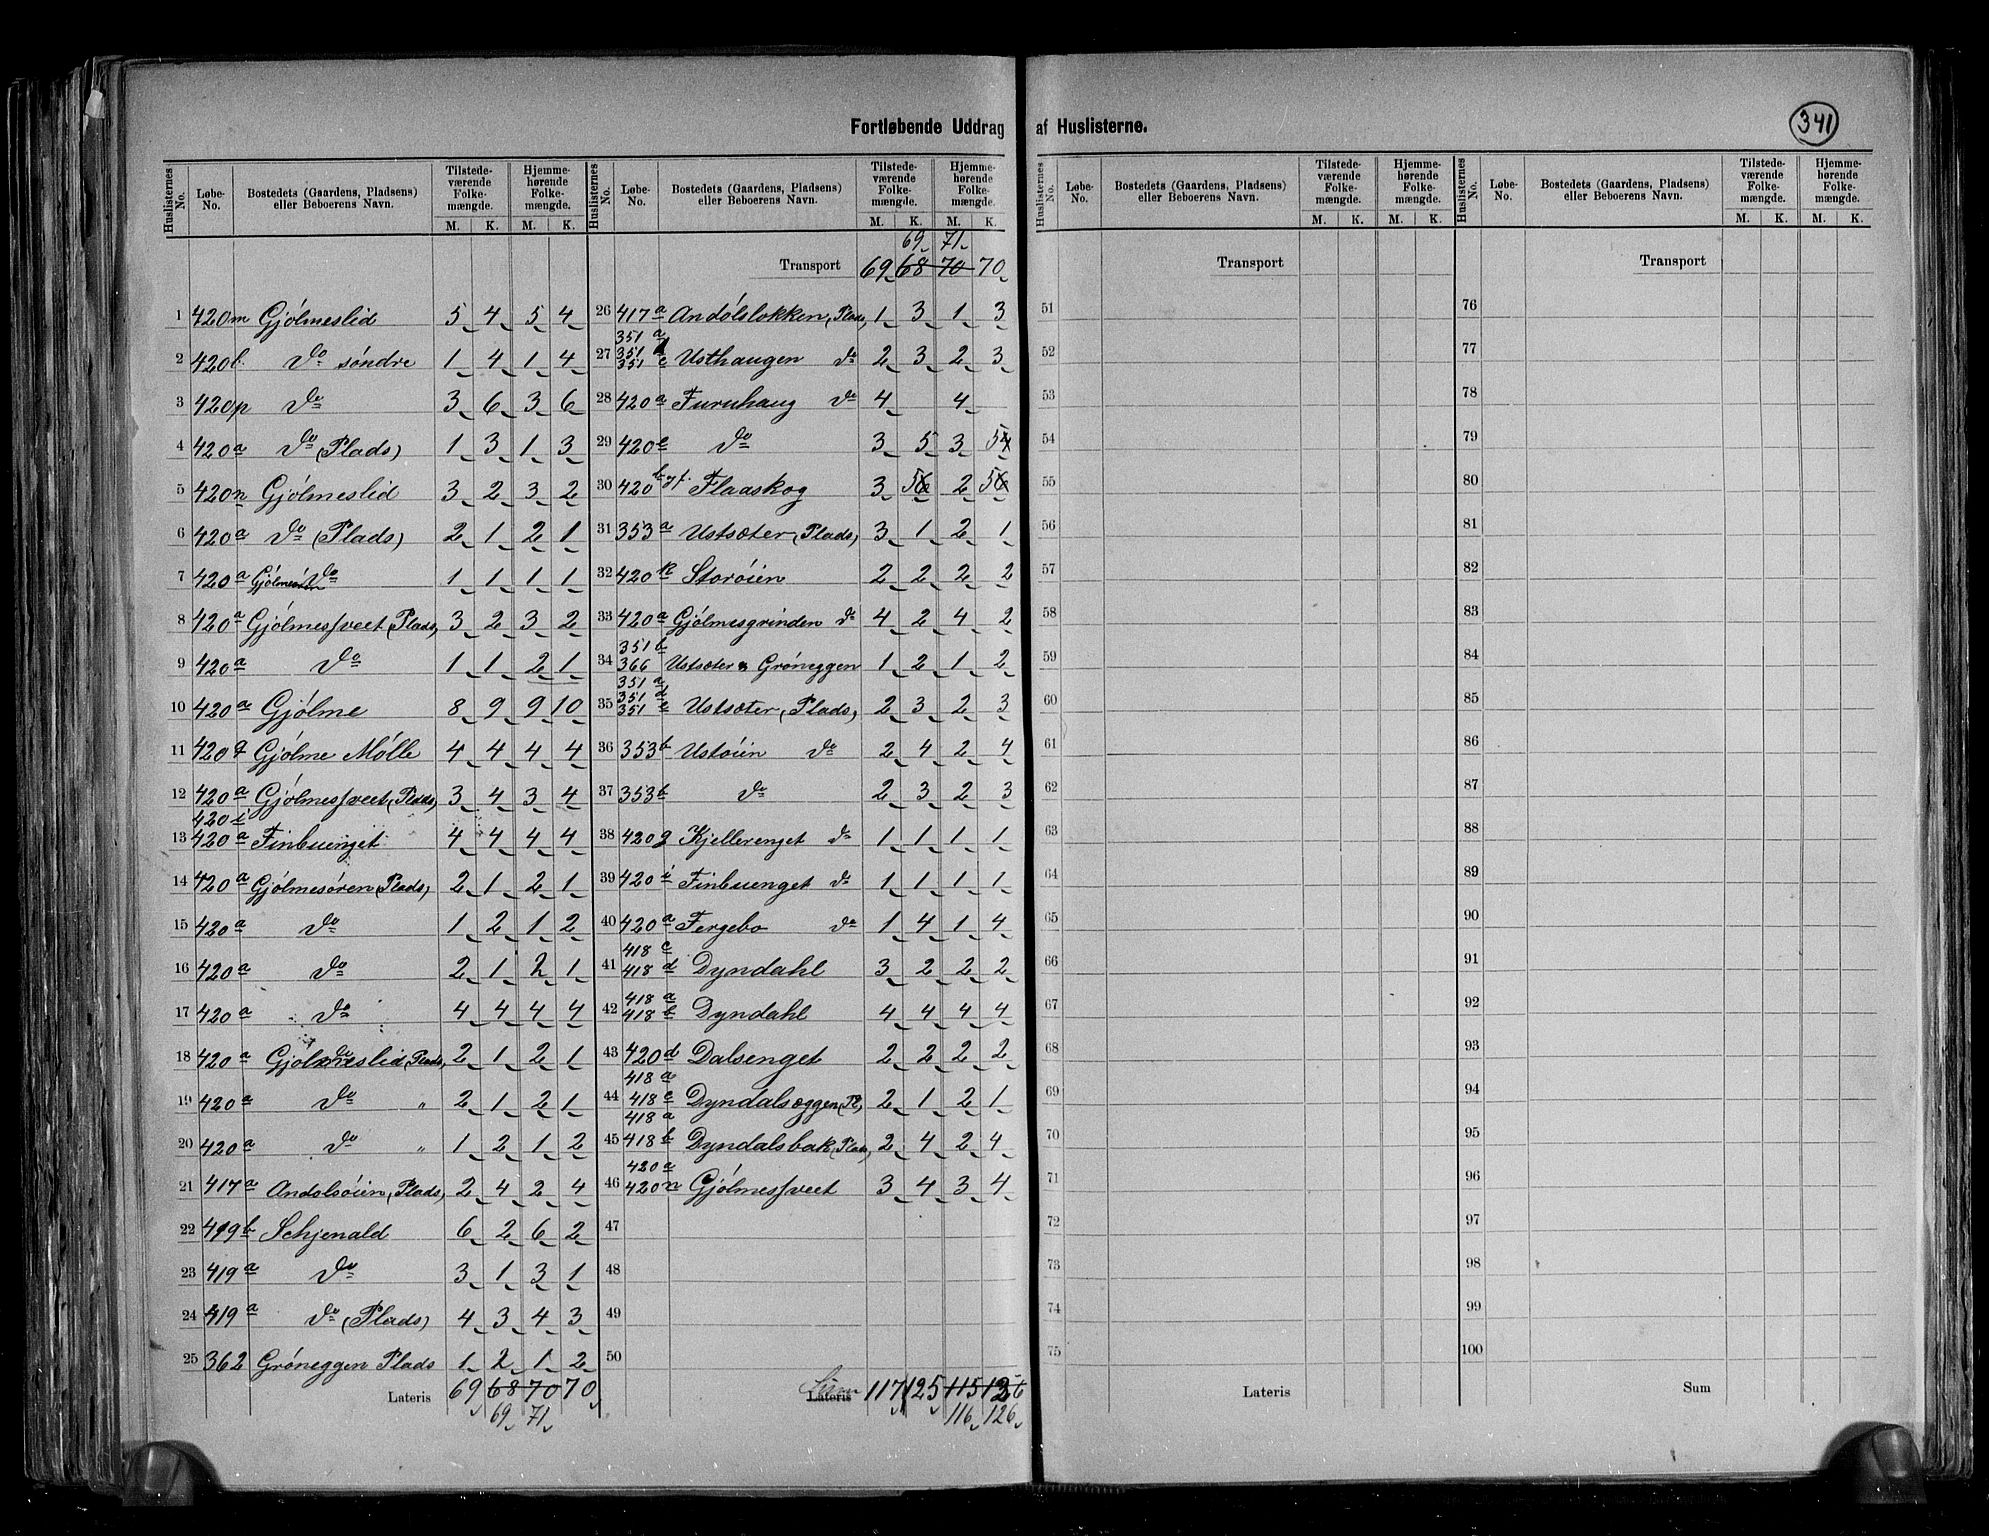 Fortløbende Uddrag af Huslisterne.
341
Huslisternes No. Løbe-No. Bostedets (Gaardens, Pladsens) eller Beboerens Navn. Tilstedeværende Folkemængde. M. K. Hjemmehørende Folkemængde. M. K.
1 420m Gjølmeslid 5 4 5 4
2 420l. do søndre 1 4 1 4
3 420p do 3 6 3 6
4 420a do (Plads) 1 3 1 3
5 420n Gjølmeslid 3 2 3 2
6 420a do (Plads) 2 1 2 1
7 420a do 1 1 1 1
8 420a Gjølmessveet (Plads) 3 2 3 2
9 420a do 1 1 2 1
10 420a Gjølme 8 9 9 10
11 420q Gjølme Mølle 4 4 4 4
12 420a Gjølmessveet (Plads) 3 4 3 4
420i
13 420a Finbuenget 4 4 4 4
14 420a Gjølmesøren (Plads) 2 1 2 1
15 420a do 1 2 1 2
16 420a do 2 1 2 1
17 420a do 4 4 4 4
18 420a Gjølmeslid (Plads) 2 1 2 1
19 420a do " 2 1 2 1
20 420a do " 1 2 1 2
21 417a Andolsøien (Plads) 2 4 2 4
22 419b Schjenald 6 2 6 2
23 419a do 3 1 3 1
24 419a do (Plads) 4 3 4 3
25 362 Grøneggen Plads 1 2 1 2
Lateris 69 68 70 70
69 71
Huslisternes No. Løbe-No. Bostedets (Gaardens, Pladsens) eller Beboerens Navn. Tilstedeværende Folkemængde. M. K. Hjemmehørende Folkemængde. M. K.
69 71
Transport 69 68 70 70
26 417a Andølsløkken (Plads) 1 3 1 3
351a
351d
27 351e Usthaugen do 2 3 2 3
28 420a Furuhaug do 4 4
29 420e do 3 5 3 5
30 420 b og f. Flaaskog 3 5 2 5
31 353a Ustsæter (Plads) 3 1 2 1
32 420k Storøien 2 2 2 2
33 420a Gjølmesgrinden do 4 2 4 2
351b
34 366 Ustsæter & Grøneggen 1 2 1 2
351a
351d
35 351e Ustsæter (Plads) 2 3 2 3
36 353b Ustøien do 2 4 2 4
37 353b do 2 3 2 3
38 420g Kjellerenget do 1 1 1 1
39 420i Finbuenget do 1 1 1 1
40 420a Fergebo do 1 4 1 4
418c
41 418d Dyndahl 3 2 2 2
418a
42 418b Dyndahl 4 4 4 4
43 420d Dalsenget 2 2 2 2
418a
44 418c Dyndalsæggen (Pl) 2 1 2 1
418a
45 418b Dyndalsbak (Plads) 2 4 2 4
420a
46 420n Gjølmessveet 3 4 3 4
47
48
49
50
Sum Lateris 117 125 115
116 126
Huslisternes No. Løbe-No. Bostedets (Gaardens, Pladsens) eller Beboerens Navn. Tilstedeværende Folkemængde. M. K. Hjemmehørende Folkemængde. M. K.
Transport
51
52
53
54
55
56
57
58
59
60
61
62
63
64
65
66
67
68
69
70
71
72
73
74
75
Lateris
Huslisternes No. Løbe-No. Bostedets (Gaardens, Pladsens) eller Beboerens Navn. Tilstedeværende Folkemængde. M. K. Hjemmehørende Folkemængde. M. K.
Transport
76
77
78
79
80
81
82
83
84
85
86
87
88
89
90
91
92
93
94
95
96
97
98
99
100
Sum